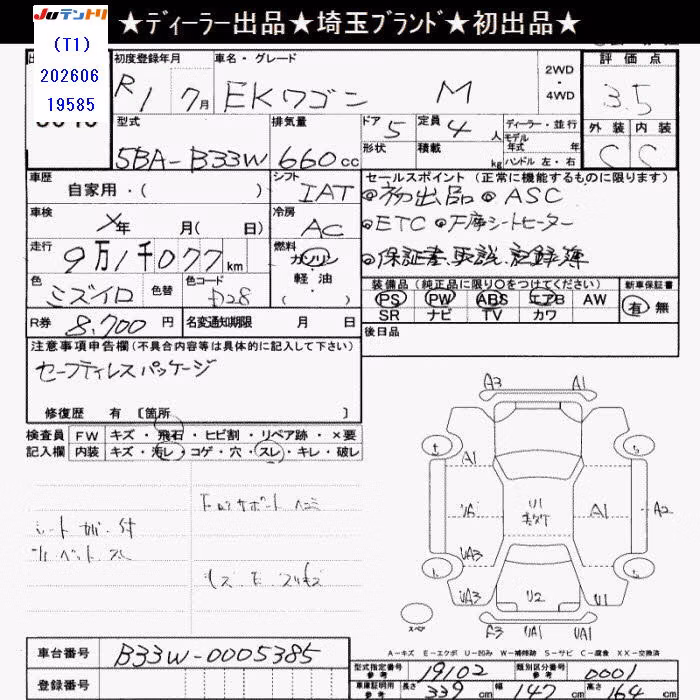 ★ディーラー出品★埼玉ブランド★初出品★
JUテントリ
(T1)
202606
19585
初度登録年月 車名・グレード 評価点
R1 7月 EKワゴン M 2WD・4WD 3.5
型式 排気量 ドア 5 定員 4人 ディーラー・並行 外装 内装
5BA-B33W 660cc 形状 積載 kg モデル年式 年式 C C
ハンドル 左・右
車歴 自家用・( ) シフト IAT セールスポイント(正常に機能するものに限ります)
◎初出品 ◎ASC
車検 ×年 月( 日) 冷房 AC
◎ETC ◎下席シートヒーター
走行 9万1千077km 燃料 ガソリン・軽油・( )
◎保証書、取説、記録簿
色 ミズイロ 色替 色コード D28
装備品(純正品に限り○をつけてください) 新車保証書
PS PW ABS エアB AW 有・無
SR ナビ TV カワ
R券 8,700円 名変通知期限 月 日
後日品
注意事項申告欄(不具合内容等は具体的に記入して下さい)
セーフティレスパッケージ
修復歴 有 〔箇所 〕
検査員 FW キズ・飛石・ヒビ割・リペア跡・×要
記入欄 内装 キズ・汚レ・コゲ・穴・スレ・キレ・破レ
A3 A1
A1
U1
A1 A2
UA3
UA3 U2 UA1
UA1
スペア
A-キズ E-エクボ U-凹み W-補修跡 S-サビ C-腐食 XX-交換済
車台番号 B33W-0005385
登録番号
型式指定番号 参考 19102 類別区分番号 参考 0001
車庫証明用 参考 長さ 339cm 幅 147cm 高さ 164cm